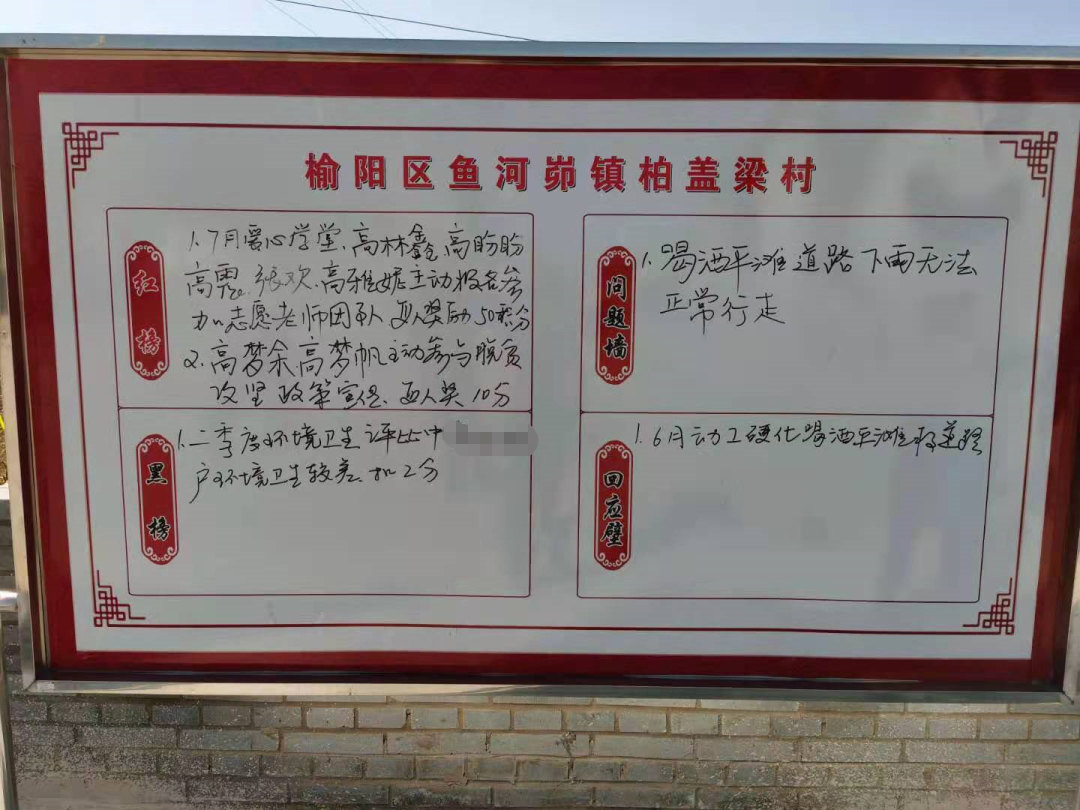 榆阳区鱼河峁镇柏盖梁村
红榜
1.7月爱心学堂、高林鑫、高盼盼
高霞、张欢、高雅妮主动报名参
加志愿老师团队 每人奖励50积分
2.高梦余高梦帆主动参与脱贫
攻坚政策宣传、每人奖10分
黑榜
1.二季度环境卫生评比中
户环境卫生较差、扣2分
问题墙
1.喝酒平滩道路下雨无法
正常行走
回应壁
1.6月动工硬化喝酒平滩村道路